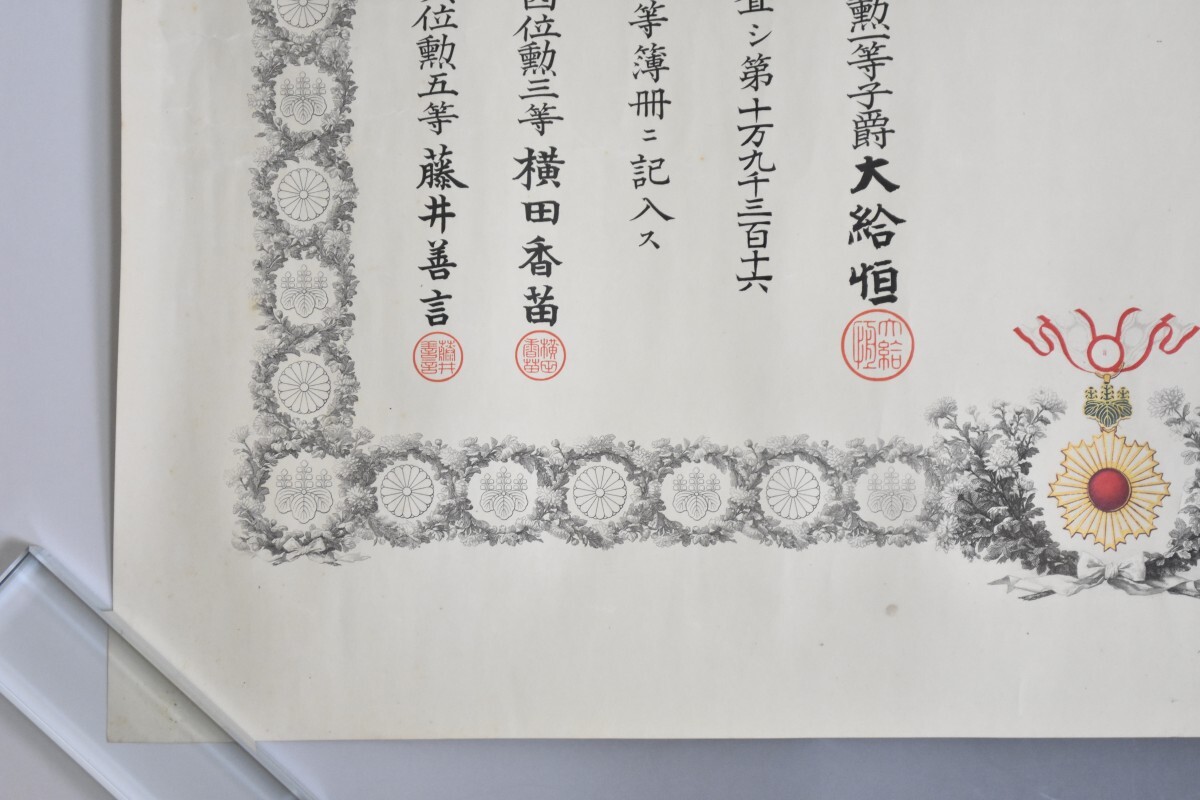 勲一等子爵大給恒
大給恒
シ第十万九千三百十六
等簿冊ニ記入ス
位勲三等横田香苗
横田香苗
位勲五等藤井善言
藤井善言